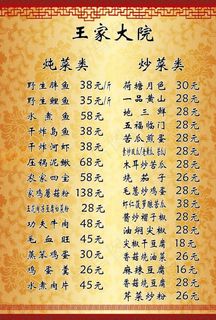 王家大院
炖菜类
野生胖鱼 38元/斤
野生鲤鱼 35元/斤
水煮鱼 58元
干炸岛鱼 38元
干炸河虾 38元
压锅泥鳅 68元
农家四宝 58元
家鸡蘑菇粉 138元
28元
功夫牛肉 48元
毛血旺 45元
蒸笨鸡蛋 30元
鸡蛋羹 26元
水煮肉片 45元
炒菜类
荷塘月色 30元
一品黄山 28元
地三鲜 28元
五福临门 28元
苦瓜煎蛋 28元
28元
木耳炒苦瓜 28元
烧茄子 26元
毛葱炒鸡蛋 28元
虾仁菠萝脆豆腐 38元
酱炒榴子椒 28元
油焖尖椒 28元
尖椒干豆腐 18元
香菇烧油菜 26元
麻辣豆腐 16元
香菇烧油菜 26元
芹菜炒粉 26元